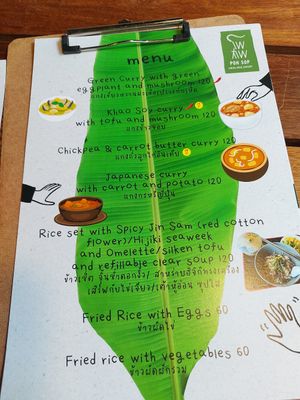 menu
POH SOP
Green Curry with green
eggplant and mushroom 120
Khao Soy curry
with tofu and mushroom 120
แกงข้าวซอย
Chickpea & carrot butter curry 120
Japanese curry
with carrot and potato 120
แกงกะหรี่ญี่ปุ่น
Rice set with Spicy Jin Sam (red cotton
flower)/Hijiki seaweek
and Omelette/silken tofu
and refillable clear soup 120
Fried Rice with Eggs 60
ข้าวผัดไข่
Fried rice with vegetables 60
ข้าวผัดผักรวม